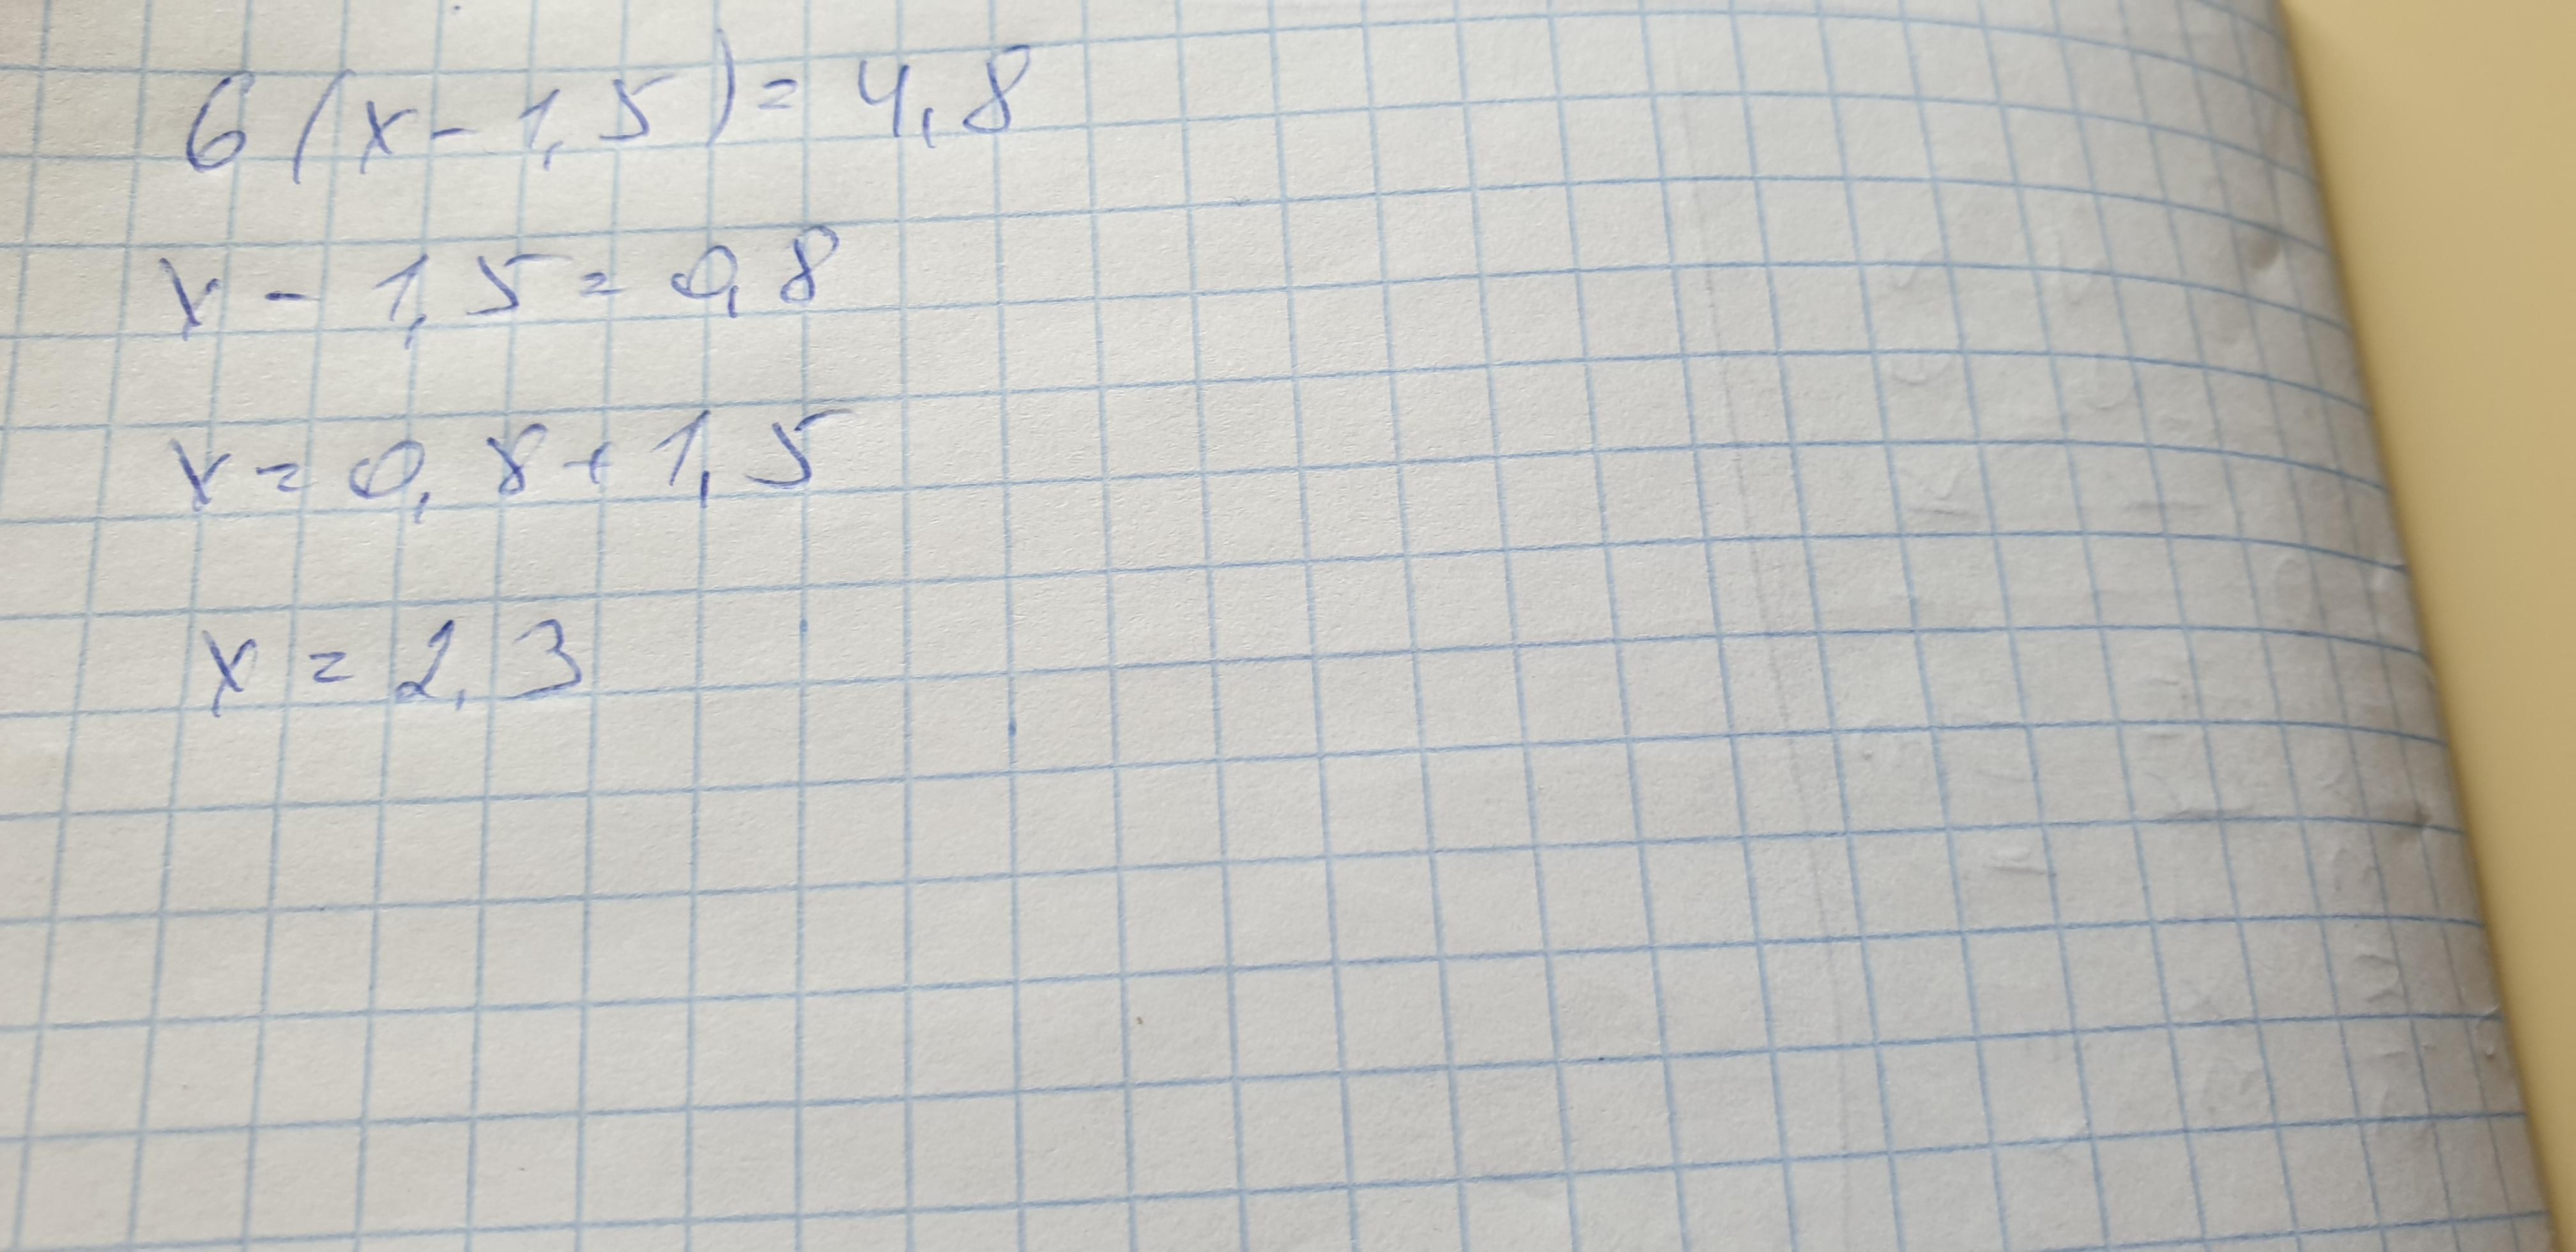 6(x-1,5)=4,8
x-1,5=0,8
x=0,8+1,5
x=2,3